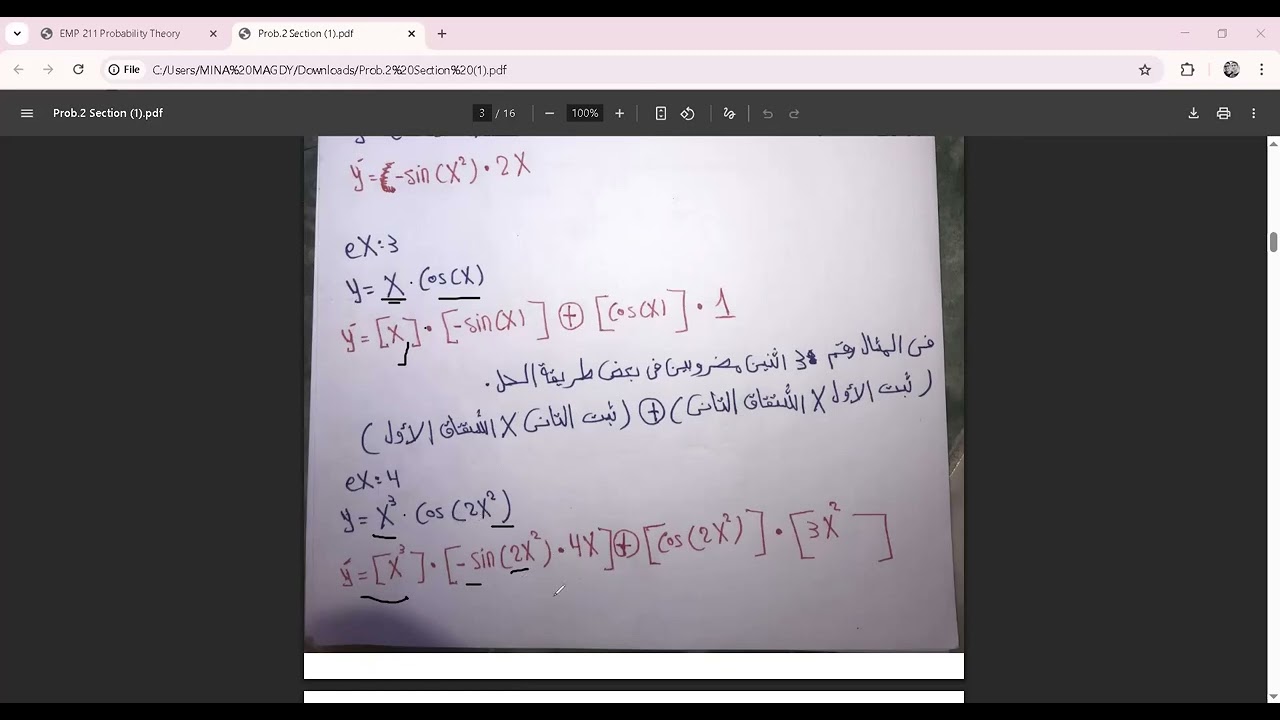 EMP 211 Probability Theory
Prob.2 Section (1).pdf
File C:/Users/MINA%20MAGDY/Downloads/Prob.2%20Section%20(1).pdf
Prob.2 Section (1).pdf 3 / 16 100%
y' = -sin(X²)·2X
eX:3
y = X · Cos(X)
y' = [X]·[-sin(X)] ⊕ [Cos(X)]·1
فى المثال رقم 3 اثنين مضروبين فى بعض طريقة الحل.
(ثبت الأول X اشتقاق التانى) ⊕ (ثبت التانى X اشتقاق الأول)
eX:4
y = X³ · Cos(2X²)
y' = [X³]·[-sin(2X²)·4X] ⊕ [Cos(2X²)]·[3X²]